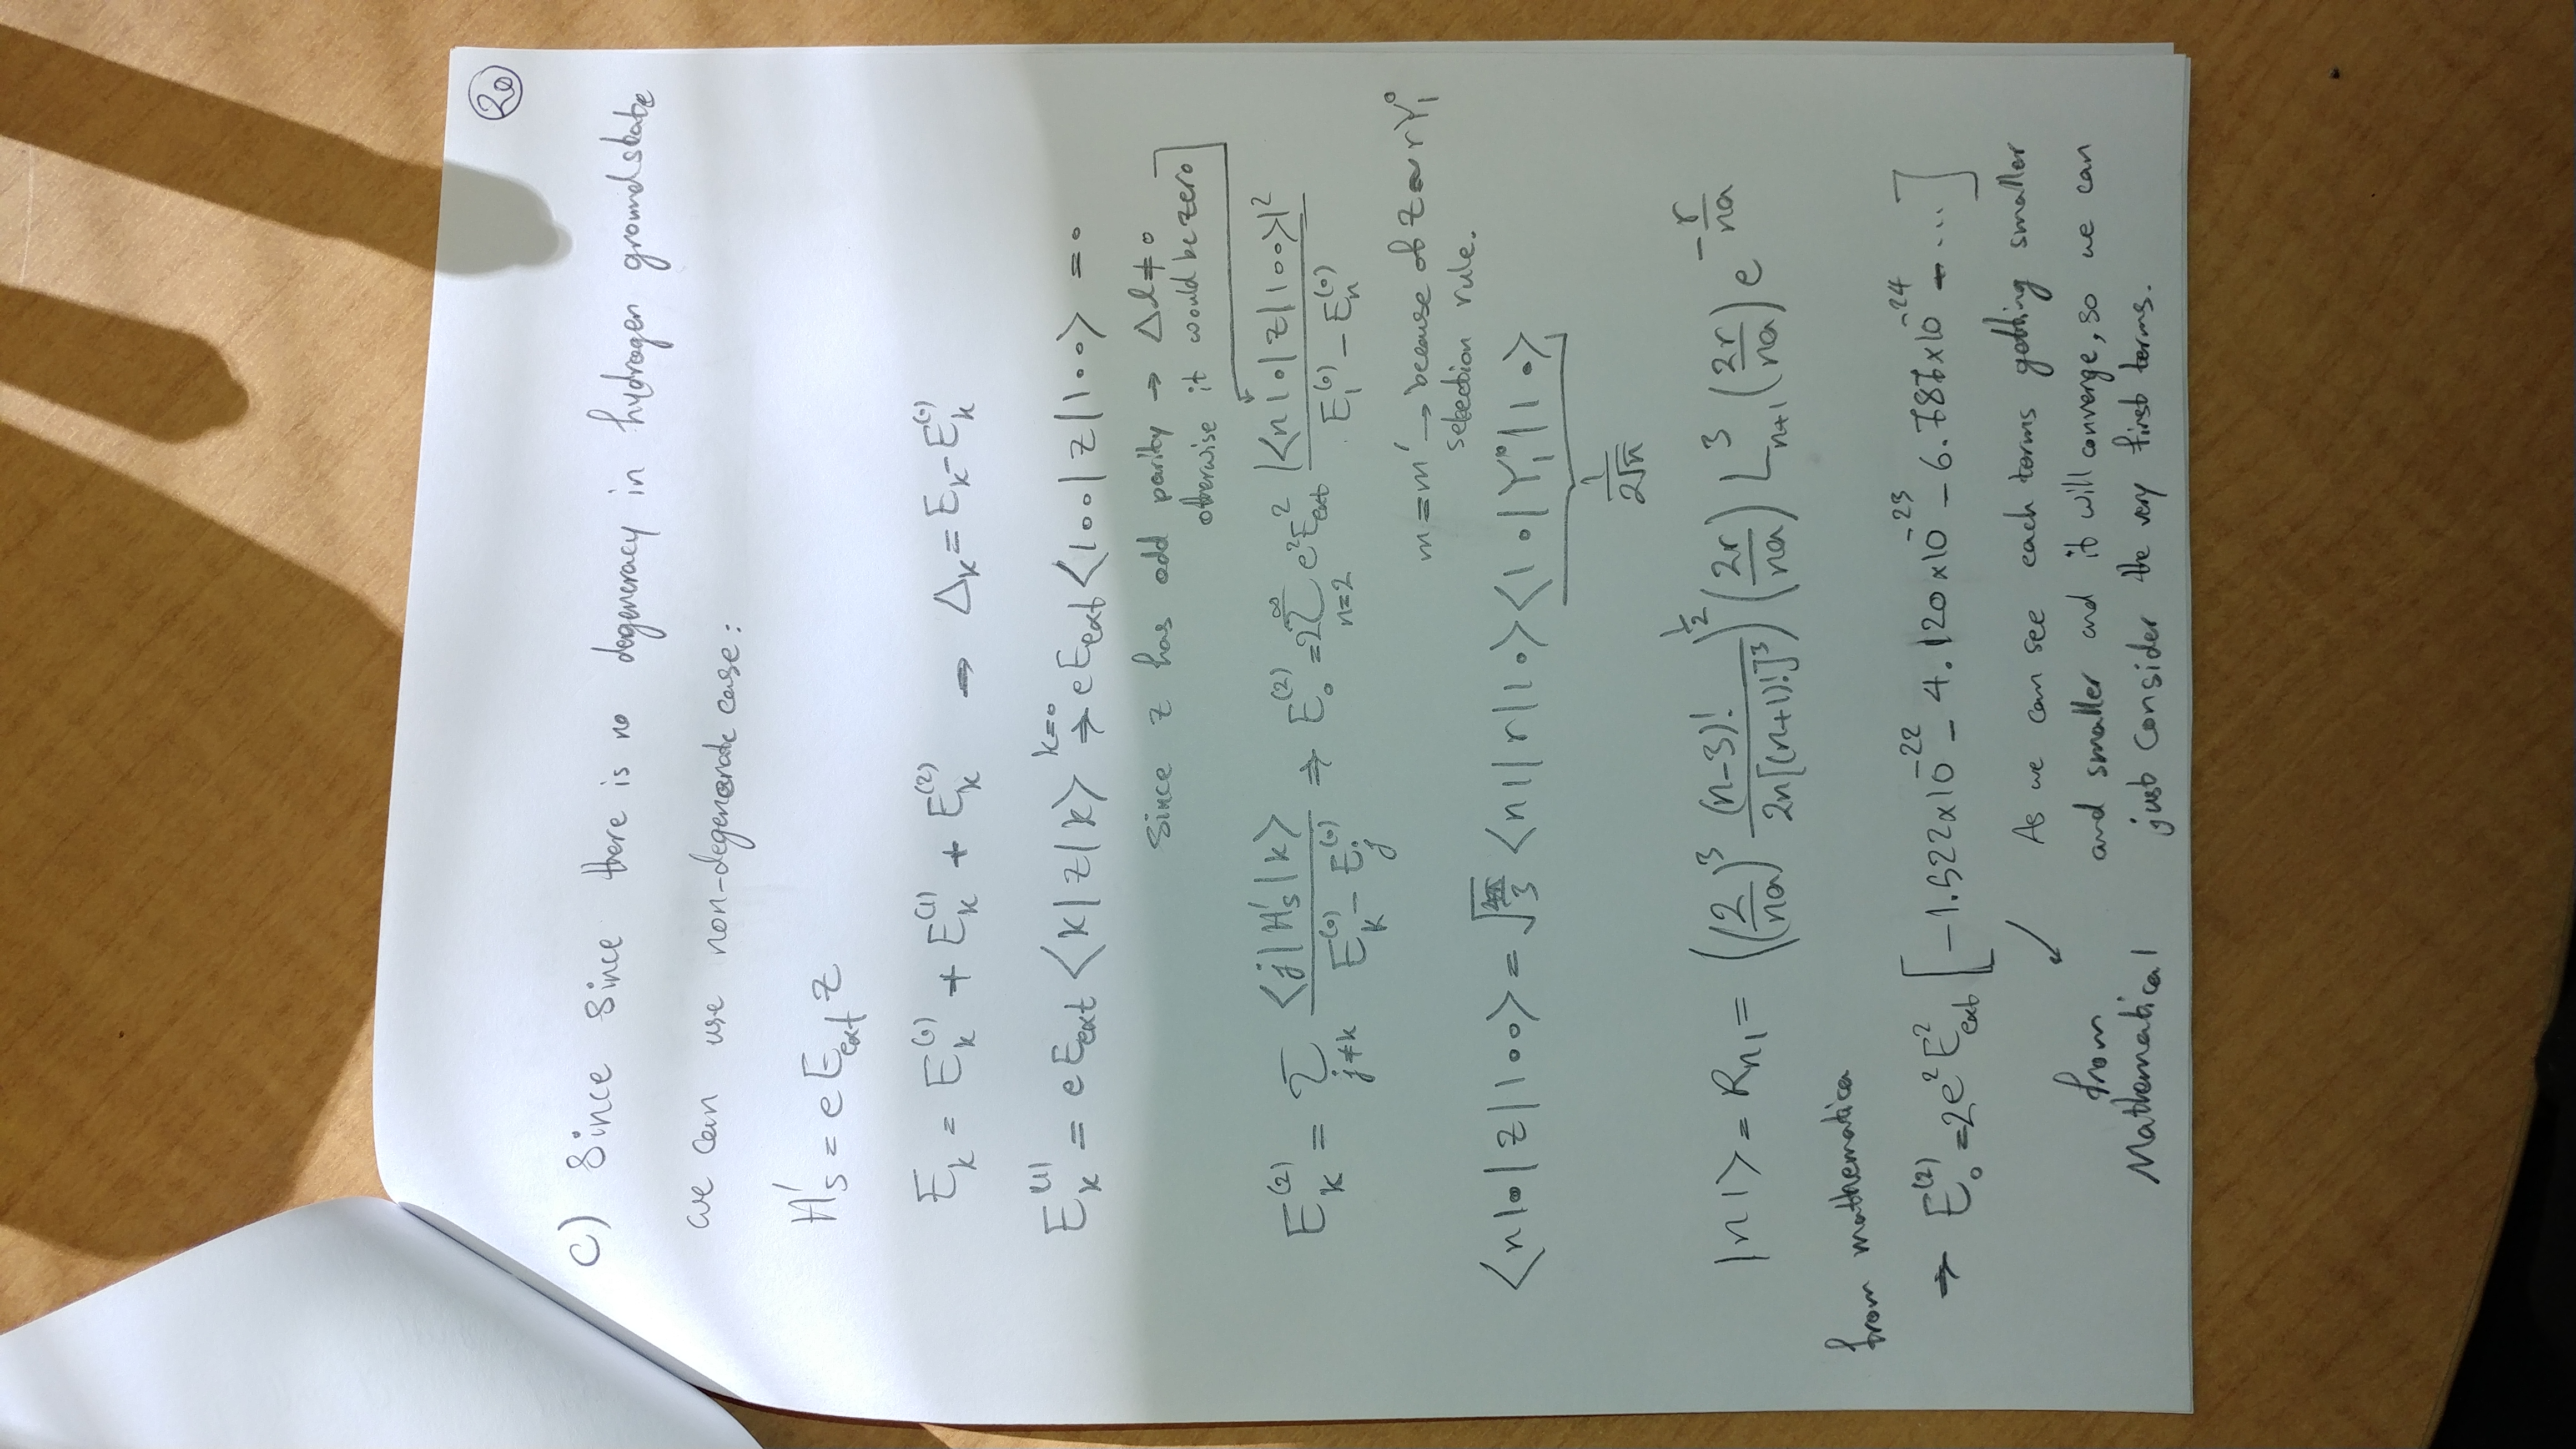 20
C) Since Since there is no degeneracy in hydrogen groundstate
we can use non-degenerate case:
H'_S = e E_ext z
E_k = E_k^(0) + E_k^(1) + E_k^(2) → Δ_k = E_k - E_k^(0)
E_k^(1) = e E_ext ⟨k|z|k⟩ k=0 ⇒ e E_ext ⟨100|z|100⟩ = 0
Since z has odd parity → Δl ≠ 0
otherwise it would be zero
E_k^(2) = Σ_{j≠k} ⟨j|H'_S|k⟩ / (E_k^(0) - E_j^(0)) ⇒ E_0^(2) = 2 Σ_{n=2}^∞ e² E_ext² |⟨n10|z|100⟩|² / (E_1^(0) - E_n^(0))
m = m' → because of z ~ r Y_1^0
selection rule.
⟨n10|z|100⟩ = √(4π/3) ⟨n1|r|10⟩ ⟨10|Y_1^0|10⟩
1/(2√π)
|n1⟩ = R_n1 = ((2/na)³ (n-3)! / 2n[(n+1)!]³)^(1/2) (2r/na) L_{n+1}^3 (2r/na) e^(-r/na)
from mathematica
⇒ E_0^(2) = 2e² E_ext² [-1.522×10^-22 - 4.120×10^-23 - 6.787×10^-24 - ...]
As we can see each terms getting smaller
and smaller and it will converge, so we can
just consider the very first terms.
from
Mathematica1